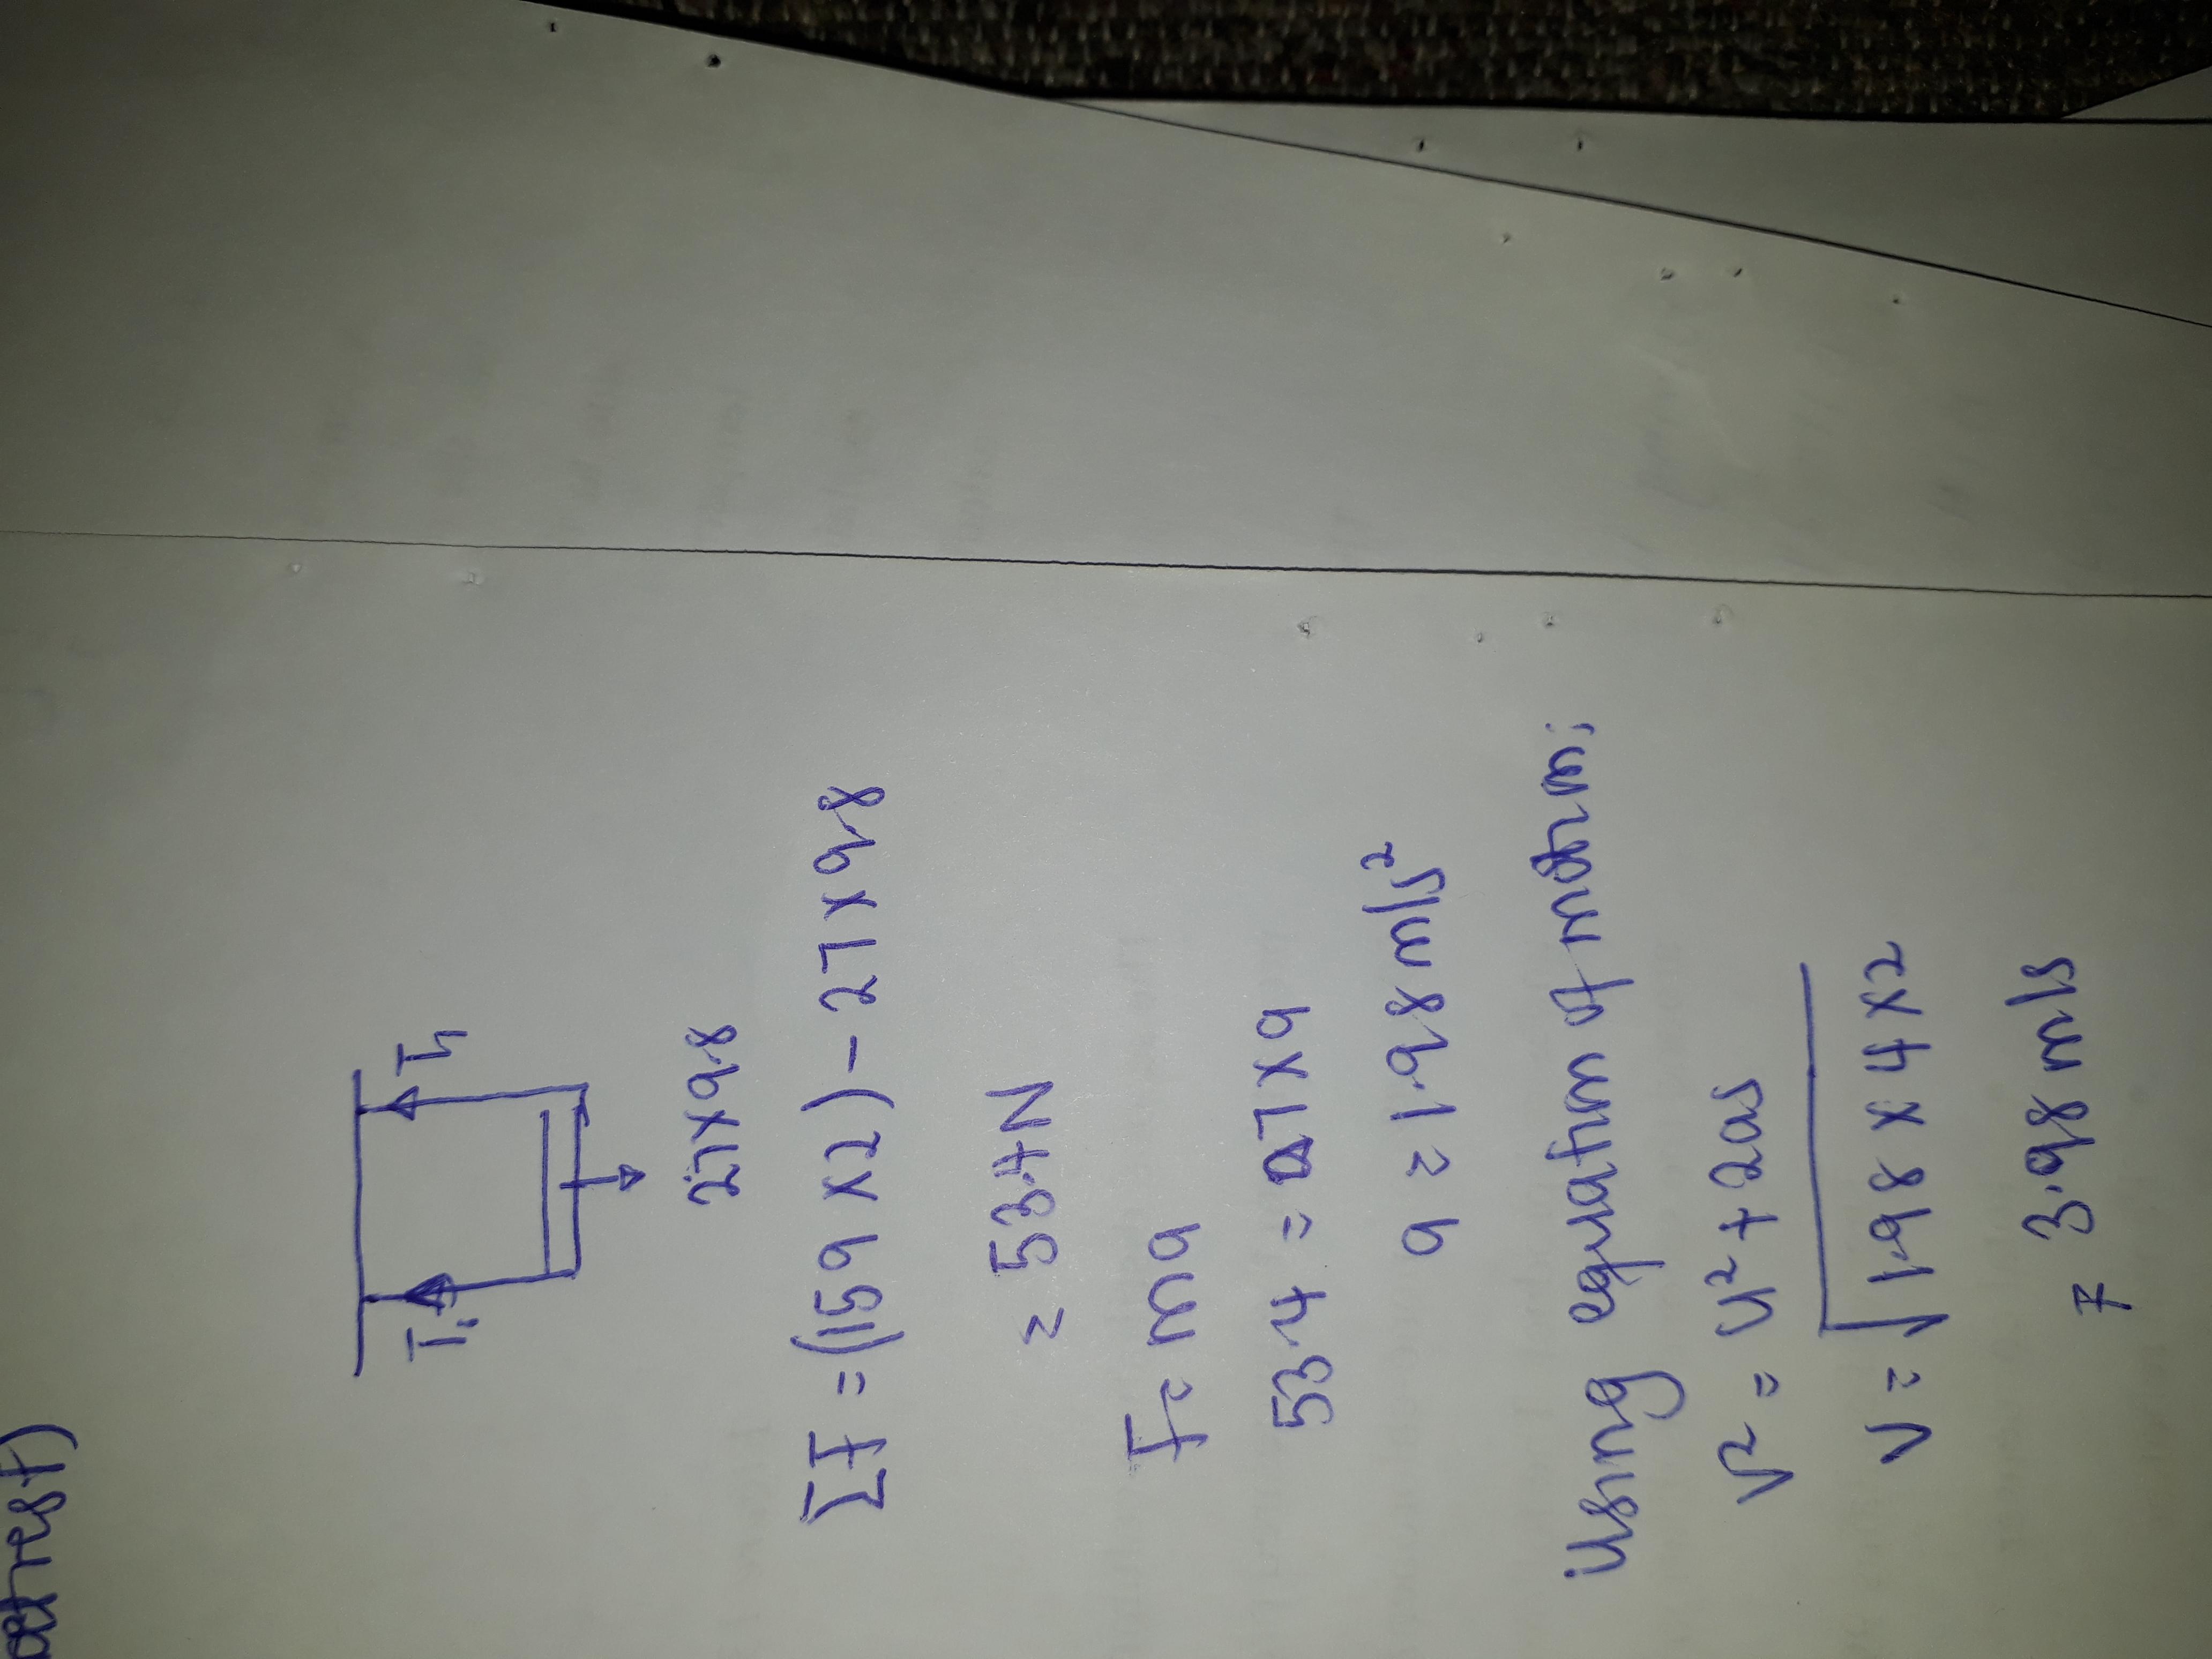 at rest)
T₁ T₁
27×9.8
ΣF = (159 ×2) - 27×9.8
= 53.4N
F = ma
53.4 = 27×a
a = 1.98 m/s²
Using equation of motion:
v² = u² + 2as
v = √1.98 × 4 ×2
= 3.98 m/s